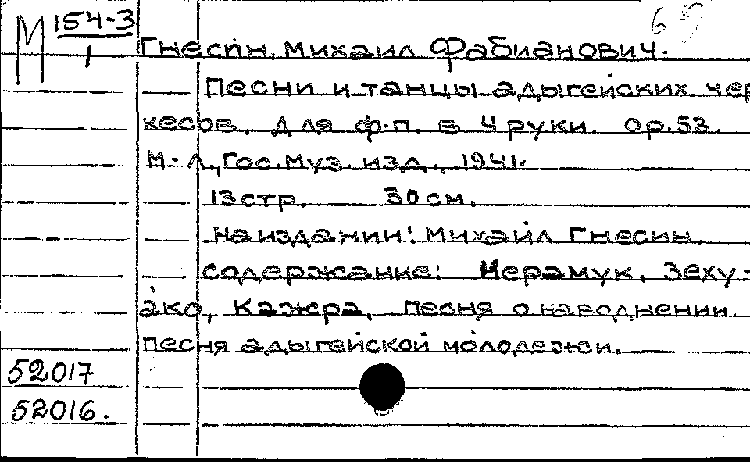 М 154-3
1
Гнесин, Михаил Фабианович.
Песни и танцы адыгейских чер
кесов. Для ф-п. в 4 руки. Ор. 53.
М.-Л., Гос. муз. изд., 1941.
13 стр. 30 см.
На издании: Михаил Гнесин.
Содержание: Нерамук, Зеху-
ако, Кажра, Песня о наводнении
песня адыгейской молодежи.
52017
52016.